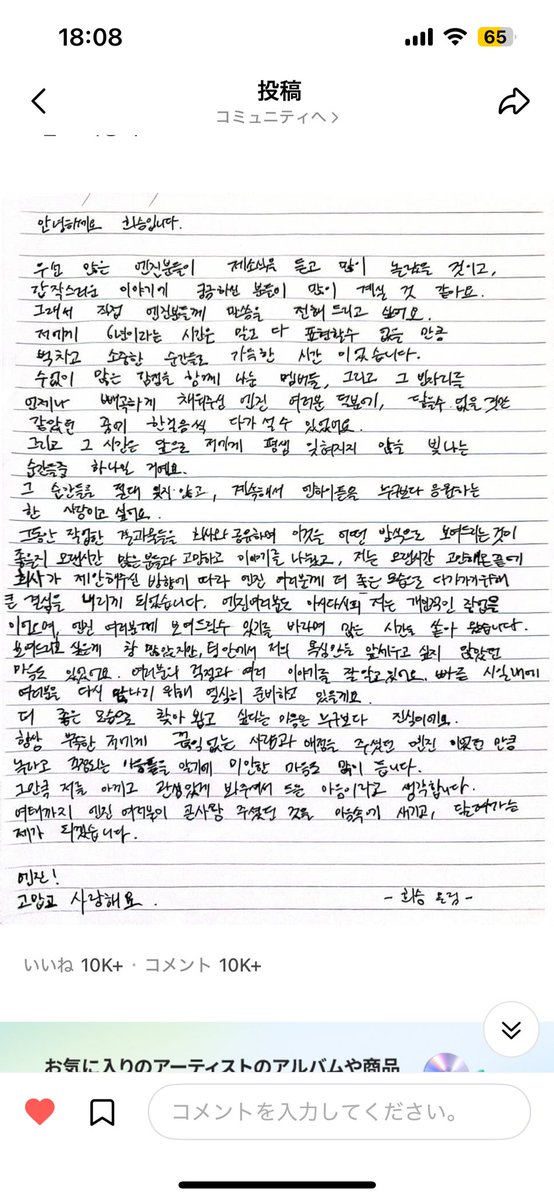 18:08
65
投稿
コミュニティへ >
안녕하세요 희승입니다.
우선 많은 엔진분들이 제소식을 듣고 많이 놀랐을 것이고,
갑작스러운 이야기에 궁금하신 분들이 많이 계실 것 같아요.
그래서 직접 엔진분들께 말씀을 전해 드리고 싶어요.
저에게 6년이라는 시간은 말로 다 표현할수 없을 만큼
벅차고 소중한 순간들로 가득한 시간 이었습니다.
수없이 많은 감정을 함께 나눈 멤버들, 그리고 그 빈자리를
언제나 빼곡하게 채워주신 엔진 여러분 덕분에, 닿을수 없을 것만
같았던 꿈에 한걸음씩 다가 설 수 있었어요.
그리고 그 시간은 앞으로 저에게 평생 잊혀지지 않을 빛나는
순간들중 하나일 거예요.
그 순간들을 절대 잊지 않고, 계속해서 엔하이픈을 누구보다 응원하는
한 사람이고 싶어요.
그동안 작업한 결과물들을 회사와 공유하며 이것을 어떤 방식으로 보여드리는 것이
좋을지 오랜시간 많은 분들과 고민하고 이야기를 나눴고, 저는 오랜시간 고민해온 끝에
회사가 제안해주신 방향에 따라 엔진 여러분께 더 좋은 모습으로 다가가기 위해
큰 결심을 내리게 되었습니다. 엔진여러분도 아시다시피 저는 개인적인 작업을
이어오며, 엔진 여러분께 보여드릴수 있기를 바라며 많은 시간을 쏟아 왔습니다.
보여드리고 싶은게 참 많았지만, 팀 안에서 저의 욕심만을 앞세우고 싶지 않았던
마음도 있었어요. 여러분의 걱정과 여러 이야기들 잘 알고 있어요. 빠른 시일내에
여러분을 다시 만나기 위해 열심히 준비하고 있을게요.
더 좋은 모습으로 찾아 뵙고 싶다는 마음은 누구보다 진심이에요.
항상 부족한 저에게 끊임없는 사랑과 애정을 주셨던 엔진 이었던 만큼
놀라고 걱정되는 마음들을 알기에 미안한 마음도 많이 듭니다.
그만큼 저를 아끼고 관심있게 봐주셔서 드는 마음이라고 생각합니다.
여태까지 엔진 여러분이 큰사랑 주셨던 것을 마음속에 새기고, 달려가는
제가 되겠습니다.
엔진!
고맙고 사랑해요.
- 희승 올림 -
いいね 10K+ · コメント 10K+
お気に入りのアーティストのアルバムや商品
コメントを入力してください。